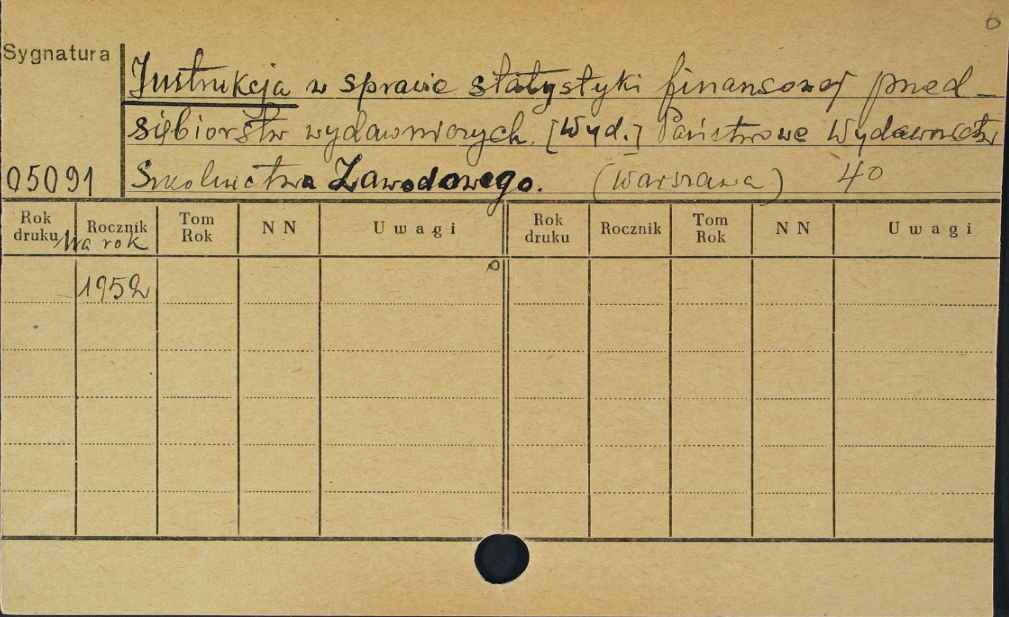 Sygnatura
Instrukcja w sprawie statystyki finansowej przed-
siębiorstw wydawniczych. [Wyd.] Państwowe Wydawnictw
05091 Szkolnictwa Zawodowego. (Warszawa) 40
Rok druku Rocznik Tom Rok NN Uwagi Rok druku Rocznik Tom Rok NN Uwagi
Na rok
1952